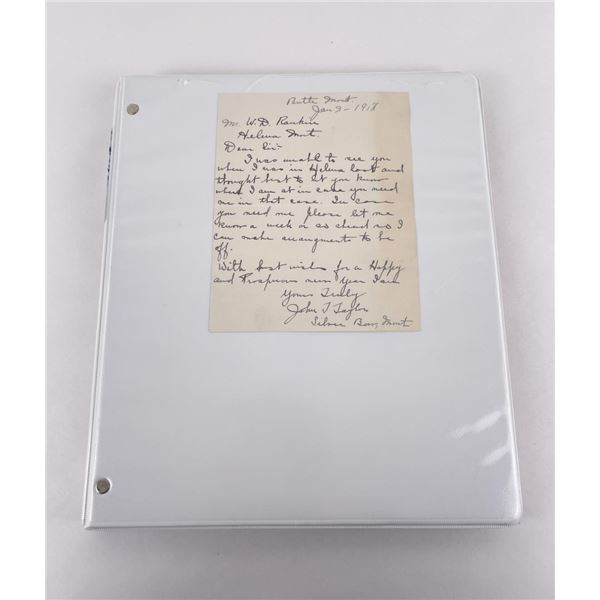 Butte Mont.
Jan 3 - 1918
Mr. W. D. Rankin
Helena Mont.
Dear Sir:-
I was unable to see you
when I was in Helena last and
thought best to let you know
where I am at in case you need
me in that case. In case
you need me please let me
know a week or so ahead so I
can make arrangments to be
off.
With best wishes for a Happy
and Prosperous new Year I am
Yours Truly
John T Taylor
Silver Bow, Mont